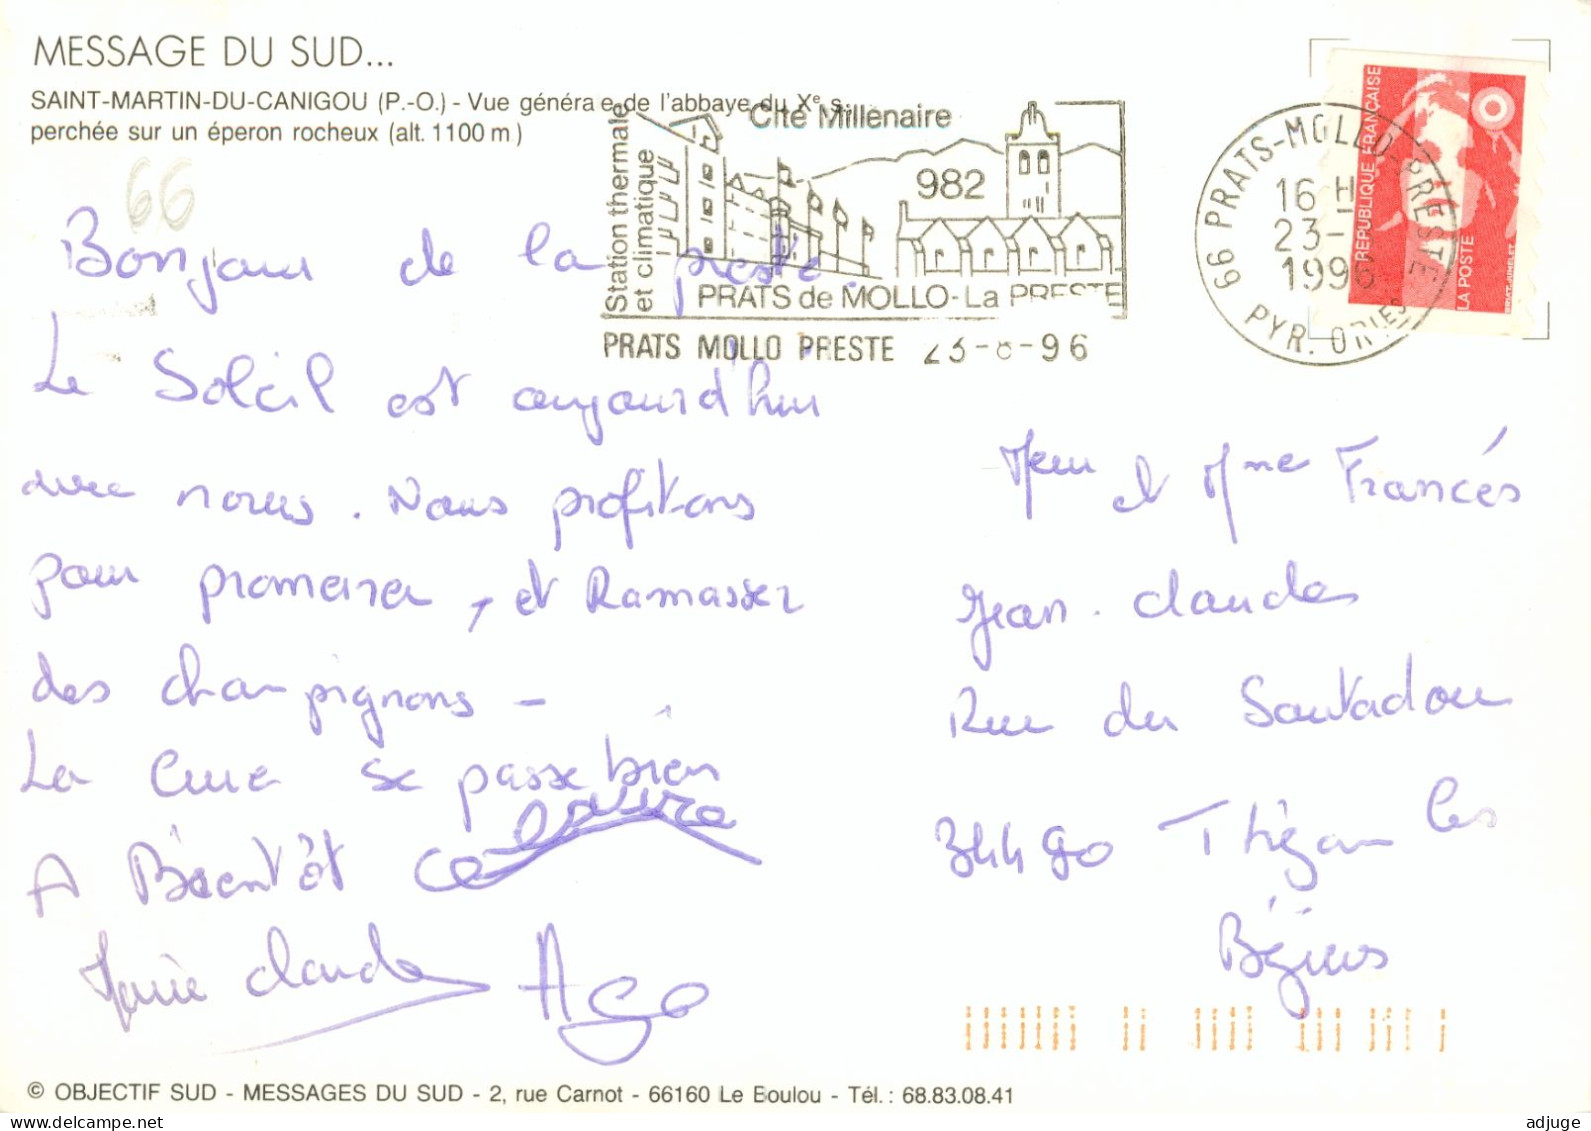 MESSAGE DU SUD...
SAINT-MARTIN-DU-CANIGOU (P.-O.) - Vue généra e de l'abbaye du Xe s.
perchée sur un éperon rocheux (alt. 1100 m)
66
Station thermale
et climatique
Cité Millénaire
982
PRATS de MOLLO-La PRESTE
PRATS MOLLO PRESTE 23-8-96
66 PRATS-MOLLO-PRESTE
16 H
23-
1996
PYR. ORIES
RÉPUBLIQUE FRANÇAISE
LA POSTE
Bonjour de la preste.
Le Soleil est aujourd'hui
avec nous. Nous profitons
pour promener, et Ramasser
des champignons -
La Cure se passe bien
A Bientôt
Marie claude
Ago
Mr et Mme Francés
Jean-claude
Rue du Soutadou
34490 Thézan les
Béziers
© OBJECTIF SUD - MESSAGES DU SUD - 2, rue Carnot - 66160 Le Boulou - Tél. : 68.83.08.41
delcampe.net
adjuge